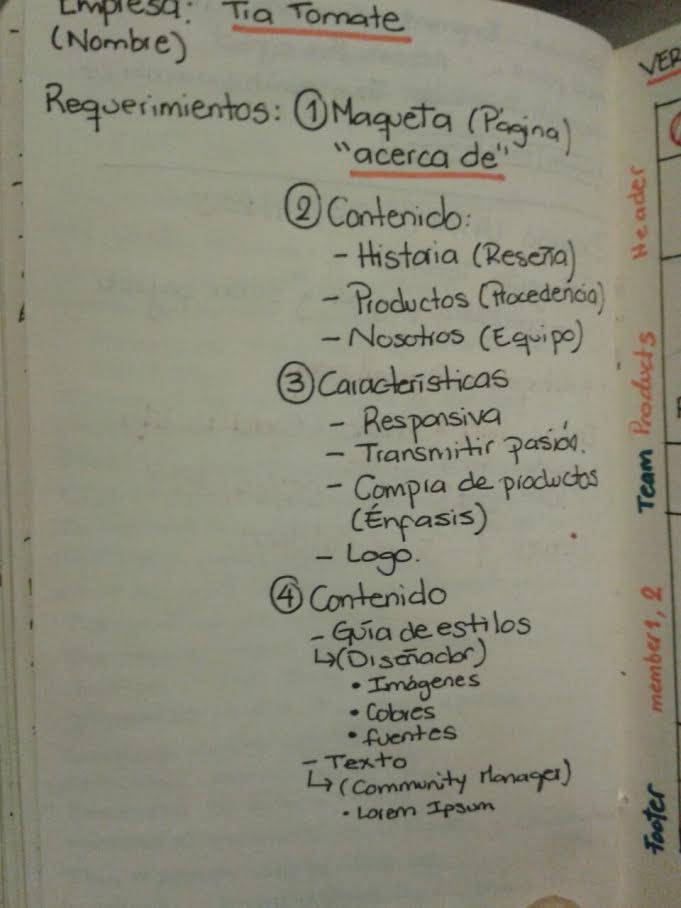 Empresa: Tia Tomate
(Nombre)
Requerimientos: ① Maqueta (Página)
"acerca de"
② Contenido:
- Historia (Reseña)
- Productos (Procedencia)
- Nosotros (Equipo)
③ Características
- Responsiva
- Transmitir pasión.
- Compra de productos
(Énfasis)
- Logo.
④ Contenido
- Guía de estilos
↳ (Diseñador)
• Imágenes
• Colores
• fuentes
- Texto
↳ (Community Manager)
• Lorem Ipsum
VER
Header
Products
Team
member 1, 2
Footer